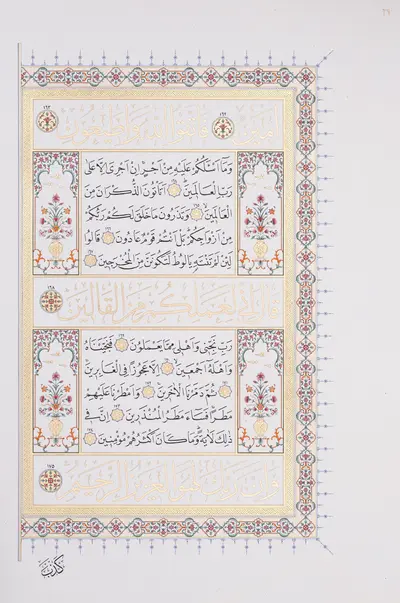 أَمِينٌ ١٦٢ فَاتَّقُوا اللّٰهَ وَأَطِيعُونِ ١٦٣
وَمَٓا اَسْـَٔلُكُمْ عَلَيْهِ مِنْ اَجْرٍ اِنْ اَجْرِيَ اِلَّا عَلٰى
رَبِّ الْعَالَمٖينَ ١٦٤ اَتَأْتُونَ الذُّكْرَانَ مِنَ
الْعَالَمٖينَ ١٦٥ وَتَذَرُونَ مَا خَلَقَ لَكُمْ رَبُّكُمْ
مِنْ اَزْوَاجِكُمْ بَلْ اَنْتُمْ قَوْمٌ عَادُونَ ١٦٦ قَالُوا
لَئِنْ لَمْ تَنْتَهِ يَا لُوطُ لَتَكُونَنَّ مِنَ الْمُخْرَجٖينَ ١٦٧
قَالَ اِنّٖي لِعَمَلِكُمْ مِنَ الْقَالٖينَ ١٦٨
رَبِّ نَجِّنٖي وَاَهْلٖي مِمَّا يَعْمَلُونَ ١٦٩ فَنَجَّيْنَاهُ
وَاَهْلَهُٓ اَجْمَعٖينَ ١٧٠ اِلَّا عَجُوزًا فِي الْغَابِرٖينَ
١٧١ ثُمَّ دَمَّرْنَا الْاٰخَرٖينَ ١٧٢ وَاَمْطَرْنَا عَلَيْهِمْ
مَطَرًا فَسَٓاءَ مَطَرُ الْمُنْذَرٖينَ ١٧٣ اِنَّ فٖي
ذٰلِكَ لَاٰيَةً وَمَا كَانَ اَكْثَرُهُمْ مُؤْمِنٖينَ ١٧٤
وَاِنَّ رَبَّكَ لَهُوَ الْعَزٖيزُ الرَّحٖيمُ ١٧٥
كَذَّبَ